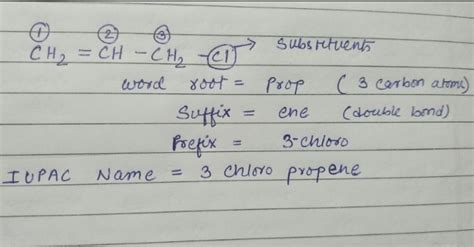 ① ② ③
CH₂ = CH - CH₂ - Cl → Substituents
word root = Prop ( 3 carbon atoms)
Suffix = ene (double bond)
Prefix = 3-chloro
IUPAC Name = 3 chloro propene